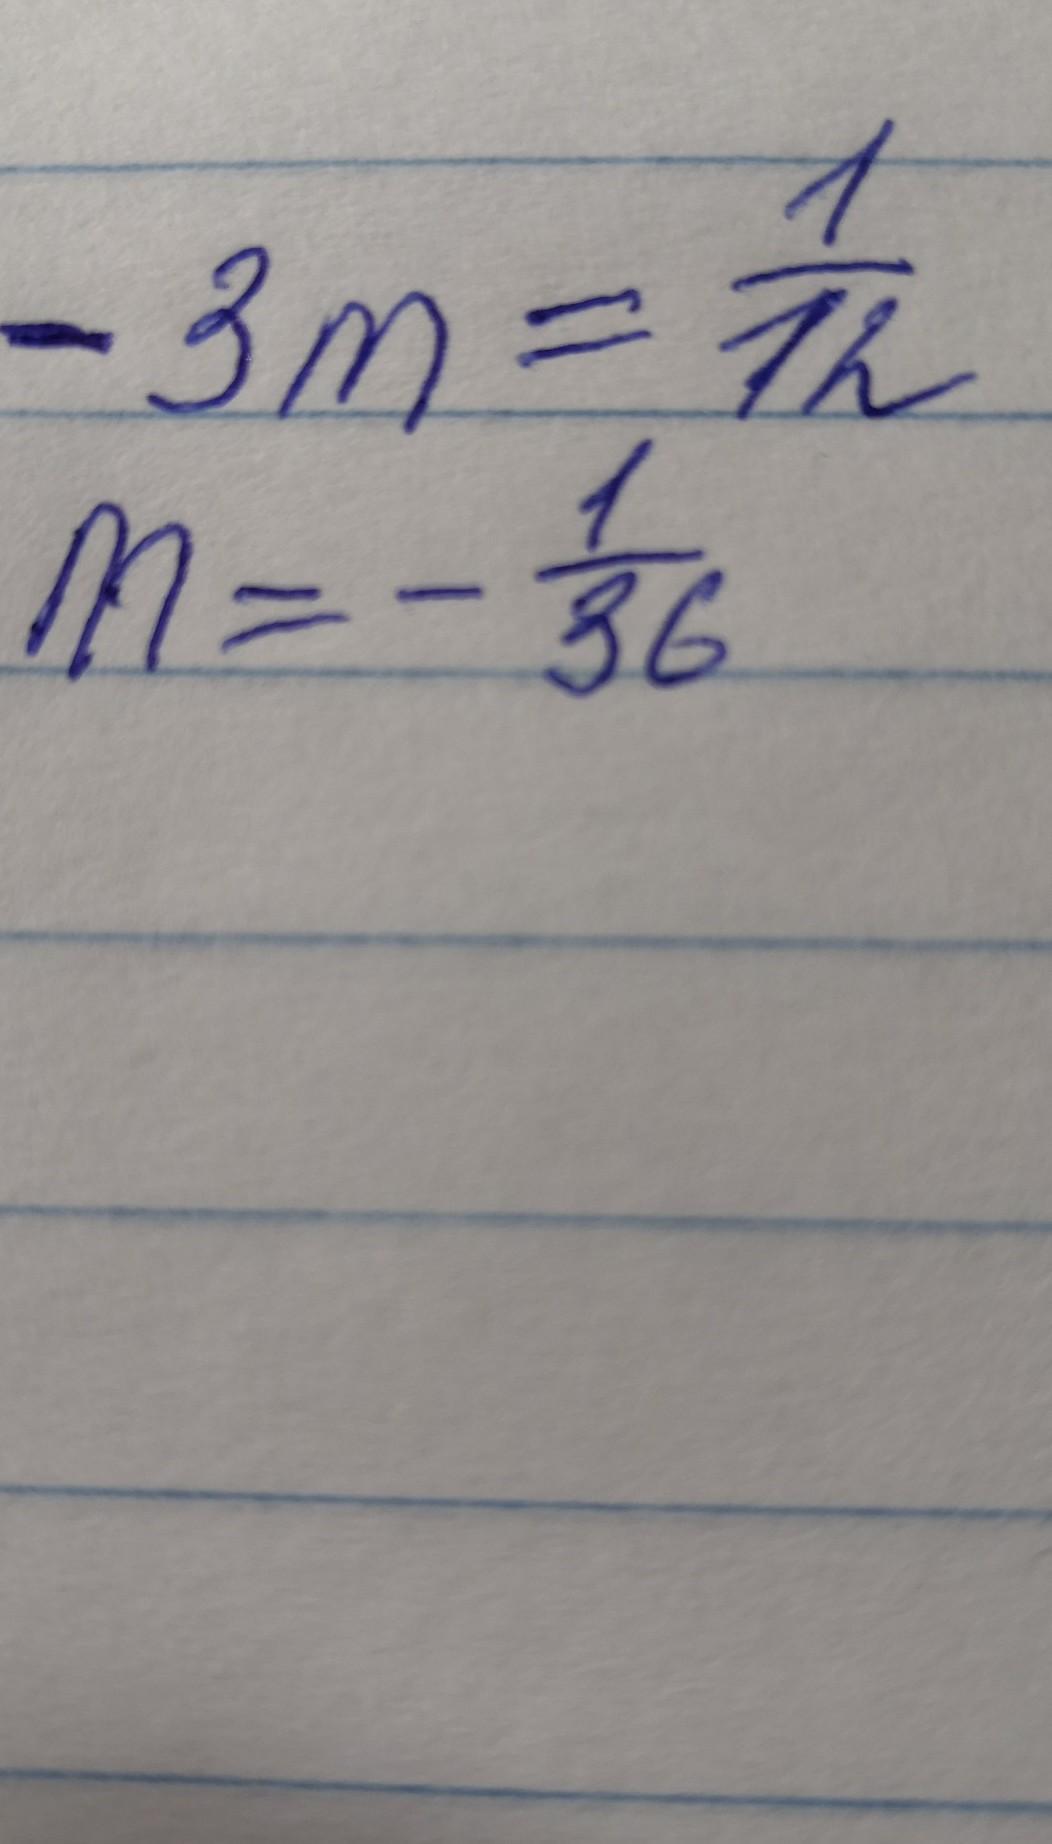 - 3m = 1/12
m = - 1/36